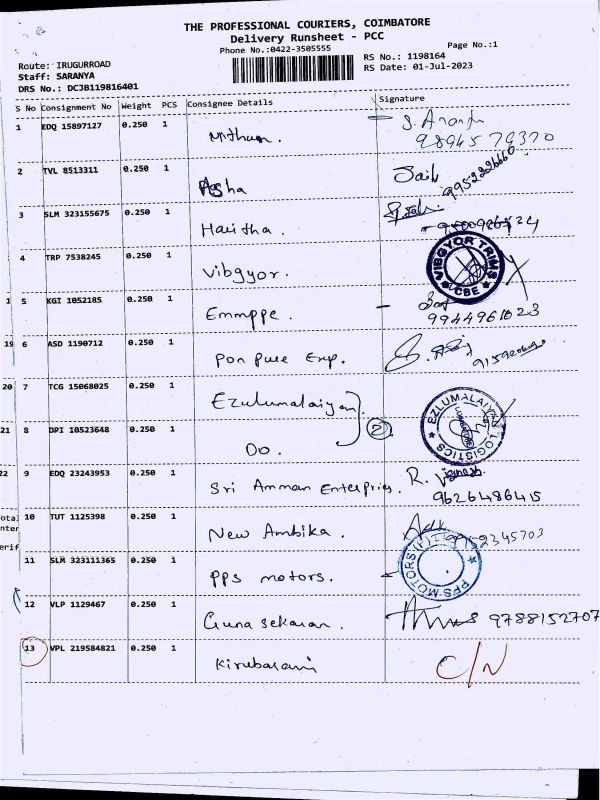 THE PROFESSIONAL COURIERS, COIMBATORE
Delivery Runsheet - PCC
Phone No.:0422-3505555
Page No.:1
Route: IRUGURROAD
RS No.: 1198164
Staff: SARANYA
RS Date: 01-Jul-2023
DRS No.: DCJB119816401
S No Consignment No Weight PCS Consignee Details Signature
1 EDQ 15897127 0.250 1 Mithun. S. Anand
9894579370
2 TVL 8513311 0.250 1 Asha Jail 9952226660
3 SLM 323155675 0.250 1 Haritha.
4 TRP 7538245 0.250 1 Vibgyor. VIBGYOR TRIMS CBE
1 5 KGI 1052185 0.250 1 Emmppe.
9944961023
19 6 ASD 1190712 0.250 1 Pon pure Exp.
20 7 TCG 15068025 0.250 1 Ezulumalaiyan EZLUMALAIYAN LOGISTICS
21 8 DPI 10523648 0.250 1 Do. 2
22 9 EDQ 23243953 0.250 1 Sri Amman Enterprises. R. Vignesh
9626486415
10 TUT 1125398 0.250 1 New Ambika. 9952345703
11 SLM 323111365 0.250 1 PPS motors. PPS MOTORS (P)
12 VLP 1129467 0.250 1 Guna sekaran. 9788152707
13 VPL 219584821 0.250 1 Kirubarani C/N